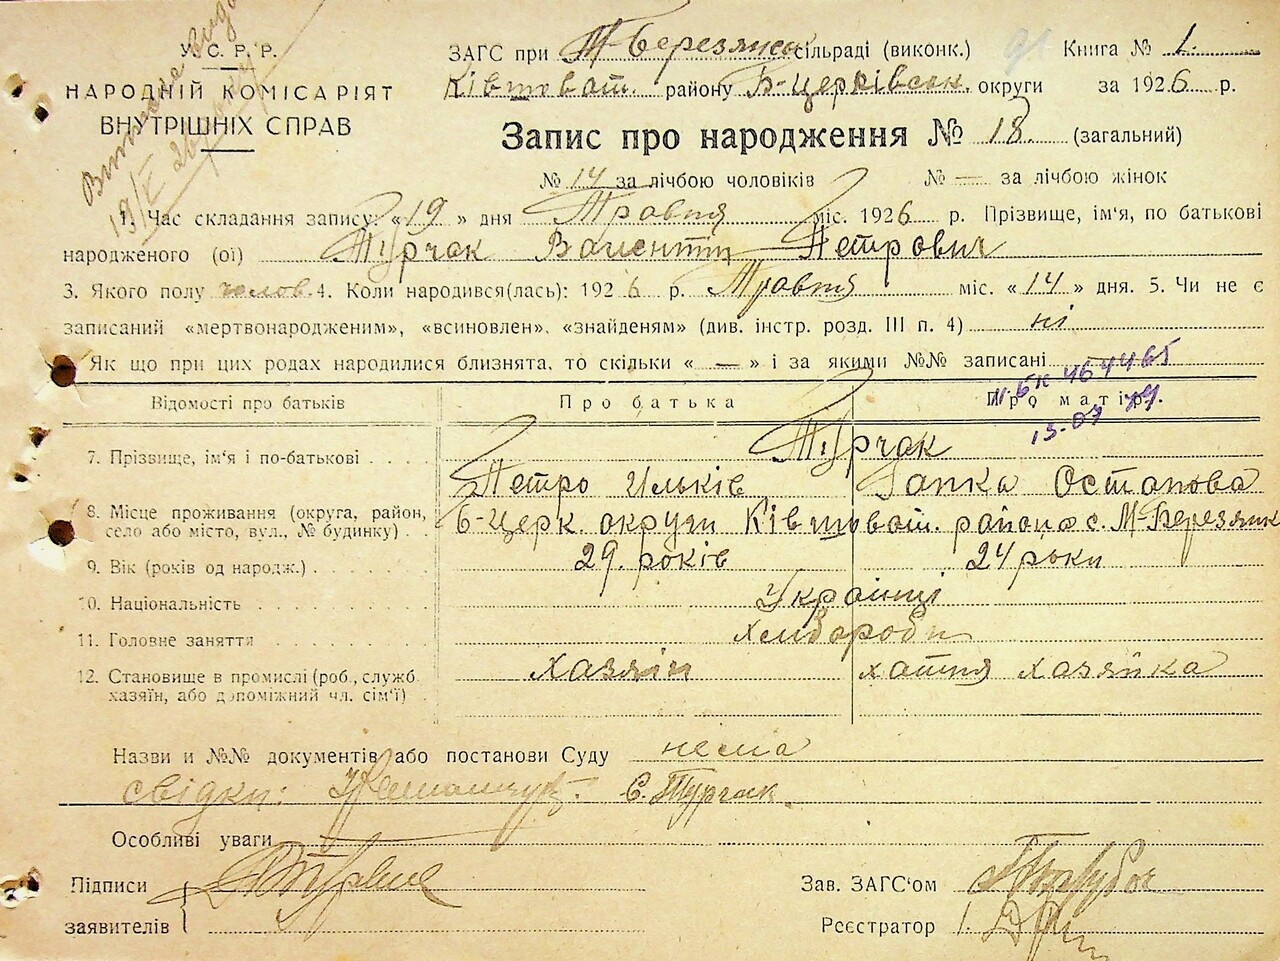 У. С. Р. Р.
НАРОДНІЙ КОМІСАРІЯТ
ВНУТРІШНІХ СПРАВ
19/V 26
ЗАГС при М-Березянск сільраді (виконк.) Книга № 1.
Ківшоват. району Б-Церківськ. округи за 1926 р.
Запис про народження № 18 (загальний)
№ 14 за лічбою чоловіків № — за лічбою жінок
1. Час складання запису: «19» дня Травня міс. 1926 р. Прізвище, ім'я, по батькові
народженого (ої) Турчак Валентин Петрович
3. Якого полу чолов. 4. Коли народився(лась): 1926 р. Травня міс. «14» дня. 5. Чи не є
записаний «мертвонародженим», «всиновлен», «знайденям» (див. інстр. розд. III п. 4) ні
Як що при цих родах народилися близнята, то скільки « — » і за якими №№ записані
Відомості про батьків Про батька Про матір.
13.07 79
7. Прізвище, ім'я і по-батькові Турчак
Петро Ильків Гапка Остапова
8. Місце проживання (округа, район, село або місто, вул., № будинку) Б-Церк. округи Ківшоват. району с. М-Березянк
9. Вік (років од народж.) 29. років 24 роки
10. Національність Українці
11. Головне заняття Хлібороби
12. Становище в промислі (роб., служб. хазяїн, або допоміжний чл. сім'ї) хазяїн хатня хазяйка
Назви и №№ документів або постанови Суду нема
свідки: С. Турчак
Особливі уваги
Підписи
заявителів
Зав. ЗАГС'ом
Реєстратор